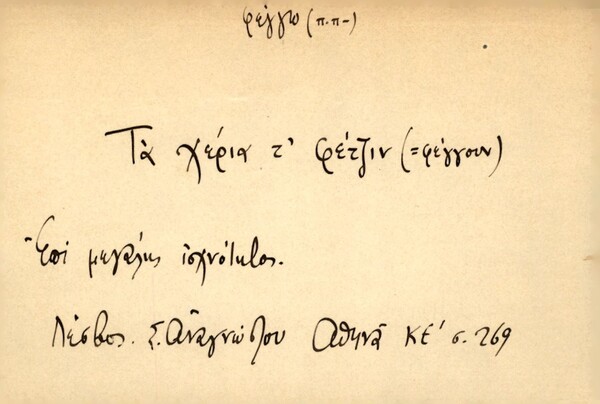 φέγγω (π.π-)
Τὰ χέρια τ' φέτζιν (=φέγγουν)
Ἐπὶ μεγάλης ἰσχνότητος.
Λέσβος. Σ. Ἀναγνώστου Ἀθηνᾶ ΚΕ' σ. 269